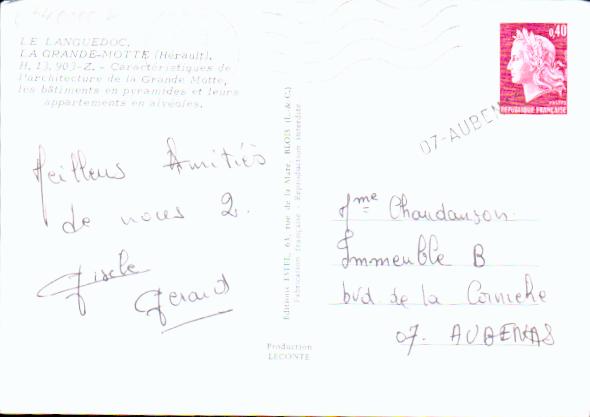 LE LANGUEDOC.
LA GRANDE-MOTTE (Hérault).
H. 13.903-Z. - Caractéristiques de
l'architecture de la Grande Motte,
les bâtiments en pyramides et leurs
appartements en alvéoles.
Meilleurs Amitiés
de nous 2.
Gisèle
Gerard
Editions ESTEL, 63, rue de la Mare, BLOIS (L.-&-C.)
Fabrication française - Reproduction interdite
Production
LECONTE
0,40
POSTES
REPUBLIQUE FRANÇAISE
07-AUBEN
Mme Chaudanson
Immeuble B
bvd de la Corniche
07. AUBENAS